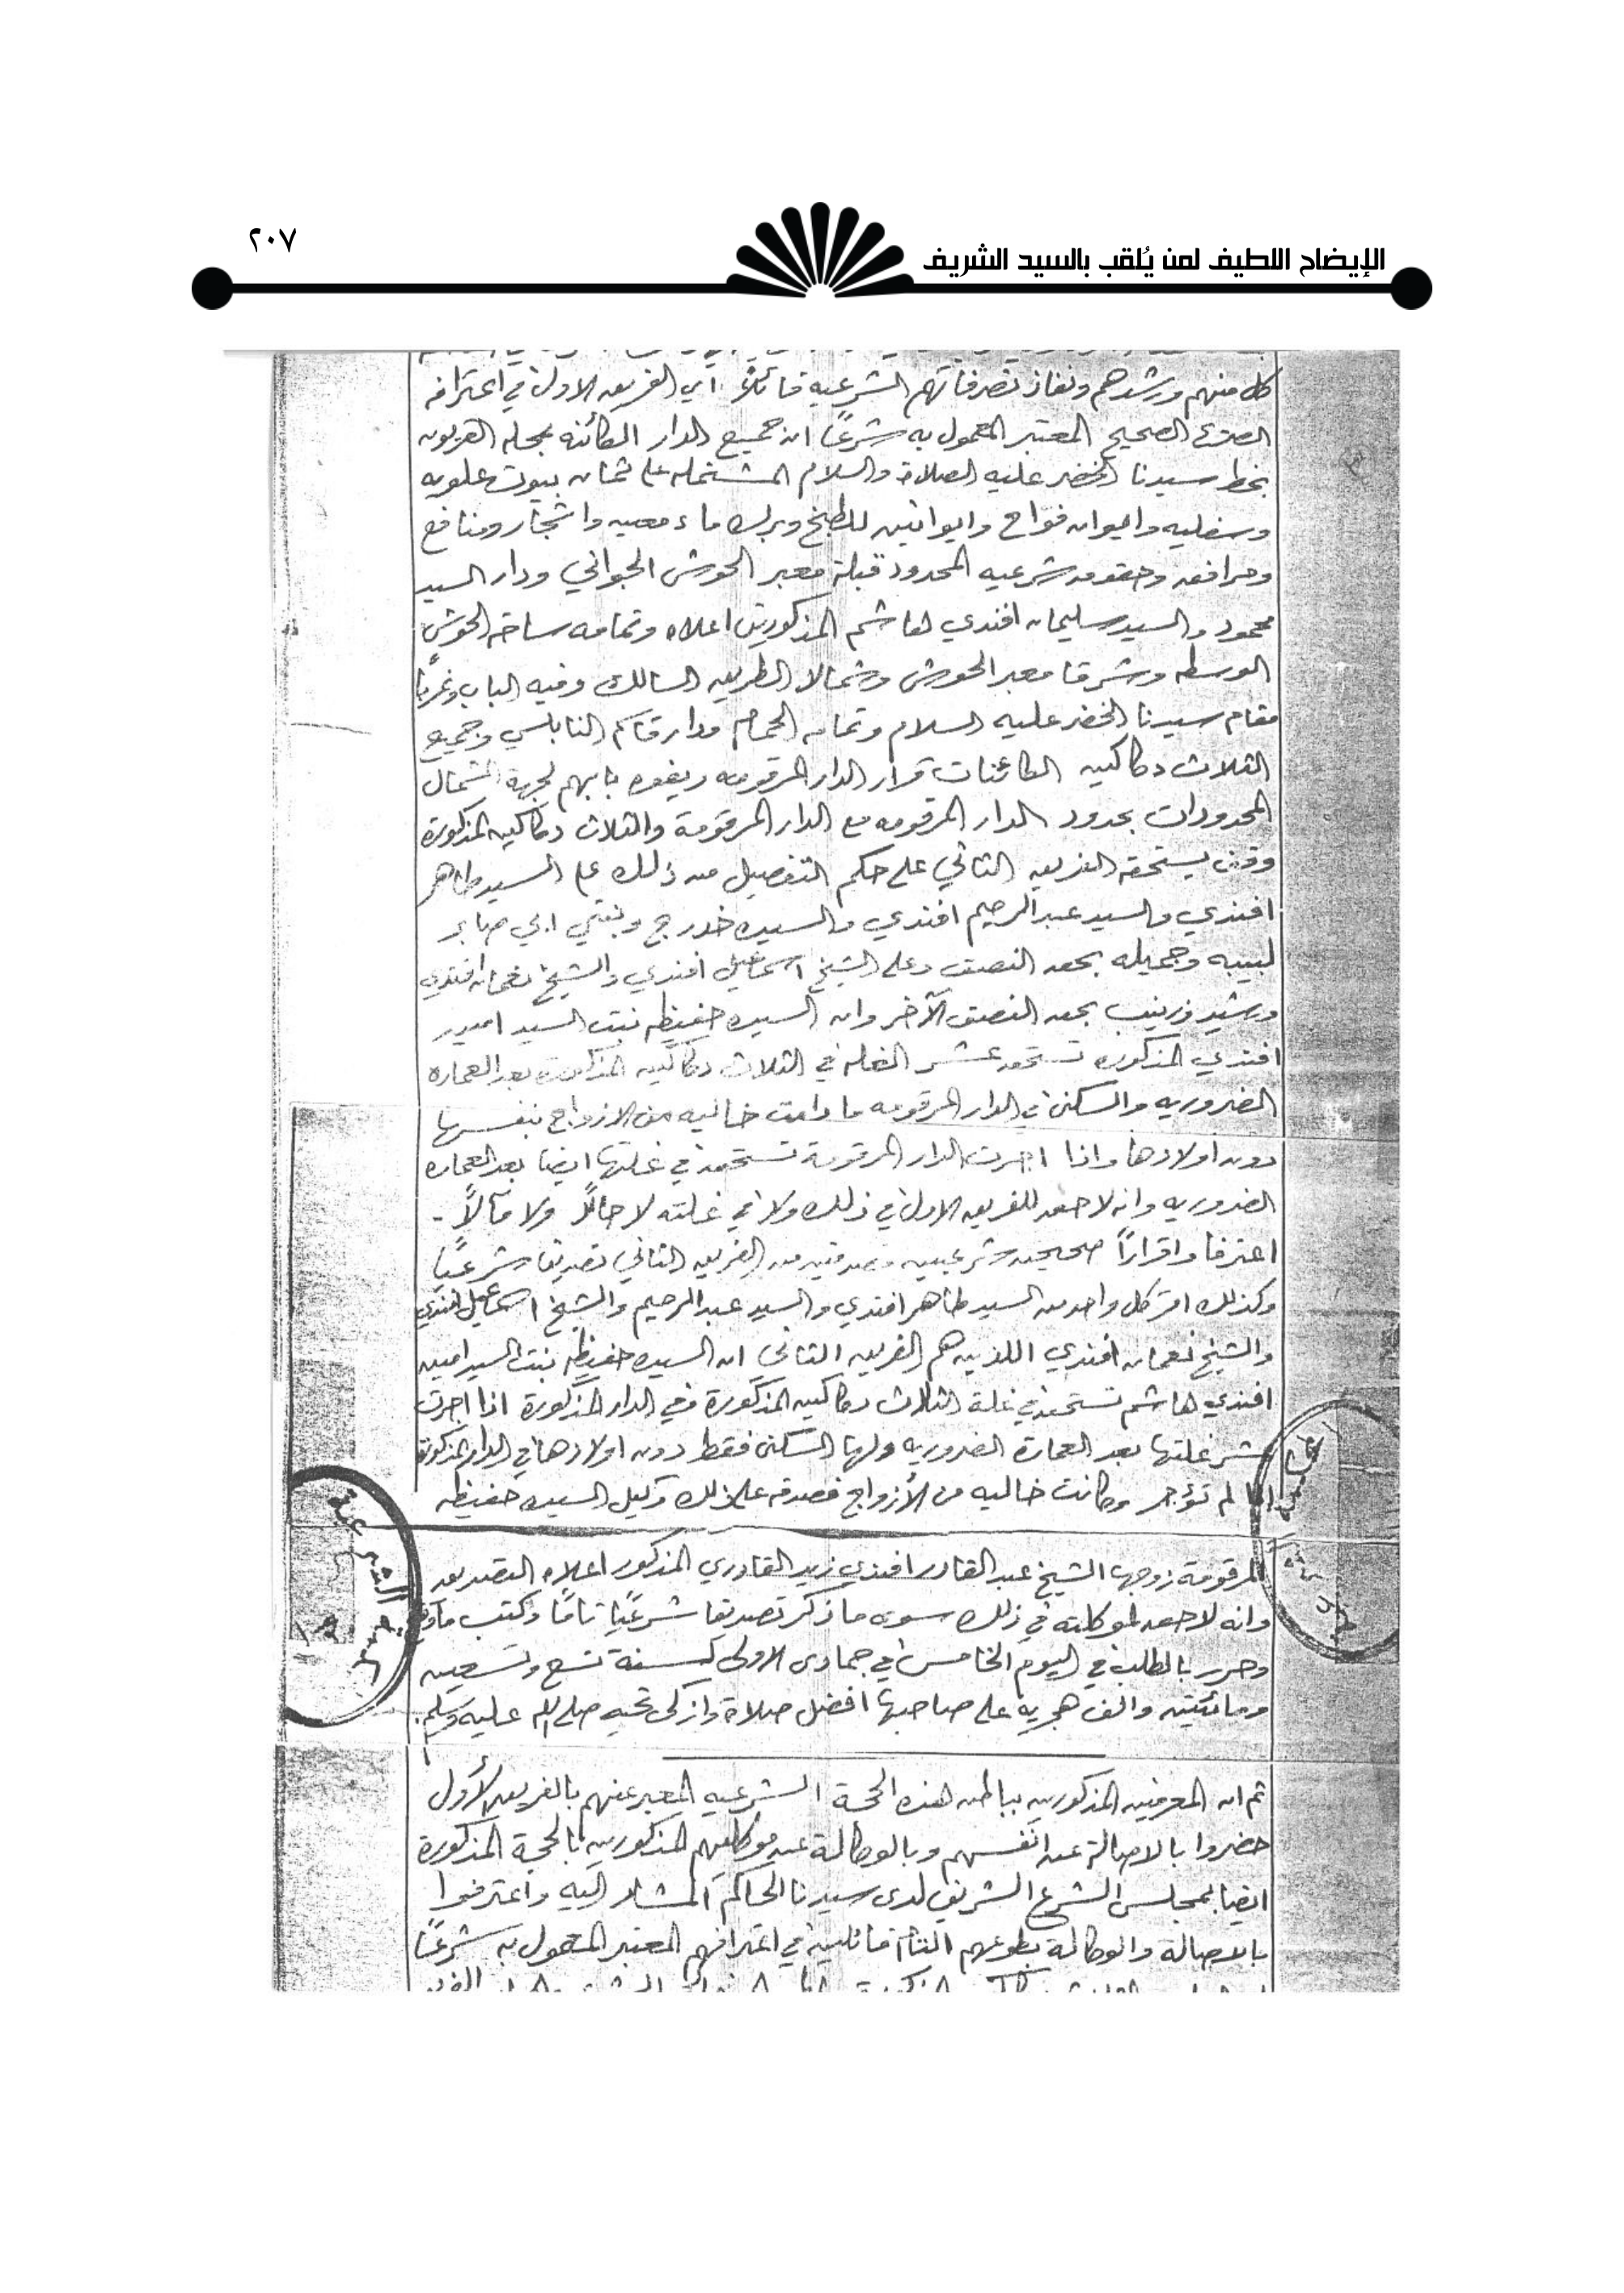 ٢٠٧
الإيضاح اللطيف لمن يُلقب بالسيد الشريف
كل منهم ورشدهم ونفاذ تصرفاتهم الشرعيه قائلاً اي الفريق الاول في اعترافه
الصحيح المعتبر المعمول به شرعًا ان جميع الدار الكائنه بمحلة القريون
بخط سيدنا الخضر عليه الصلاة والسلام المشتمله على ثمان بيوت علويه
وسفليه وايوان وايوانين للطبخ وبرك ماء معين واشجار ومنافع
ومرافق وحقوق شرعيه المحدود قبلة معبر الحوش الجواني ودار السيد
محمود والسيد سليمان افندي هاشم المذكورين اعلاه وتمامه ساحة الحوش
الوسطه وشرقا معبر الحوش وشمالا الطريق السالك وفيه الباب وغربًا
مقام سيدنا الخضر عليه السلام وتمامه الحمام ودار النابلسي وجميع
الثلاث دكاكين الكائنات قرار الدار المرقومه بابهم لجهة الشمال
المحدودات بحدود الدار المرقومه مع الدار المرقومة والثلاث دكاكين المذكورة
وقف يستحقه الفريق الثاني على حكم التفصيل من ذلك على السيد طاهر
افندي والسيد عبد الرحيم افندي والسيده وبنتي
لبيبه وجميله بحق النصف وعلى الشيخ اسماعيل افندي والشيخ نعمان افندي
ورشيد وزينب بحق النصف الآخر وان السيده حفيظه بنت السيد امين
افندي المذكوره تستحق عشر الغله في الثلاث دكاكين المذكورة بعد العماره
الضروريه والسكنى في الدار المرقومه ما دامت خاليه من الازواج بنفسها
دون اولادها واذا اجرت الدار المرقومة تستحق في غلتها ايضا بعد العماره
الضروريه وانه لا حق للفريق الاول في ذلك ولا في غلته لا حالاً ولا مآلاً -
اعترفا واقرارًا صحيحين شرعيين مصدقين من الفريق الثاني تصديقا شرعيًا
وكذلك اقر كل واحد من السيد طاهر افندي والسيد عبد الرحيم والشيخ اسماعيل افندي
والشيخ نعمان افندي اللذين هم الفريق الثاني ان السيده حفيظه بنت السيد امين
افندي هاشم تستحق في غلة الثلاث دكاكين المذكورة وفي الدار المذكورة اذا اجرت
عشر غلتها بعد العمارة الضروريه ولها السكنى فقط دون اولادها في الدار المذكورة
اذا لم تؤجر وكانت خاليه من الأزواج فصدقه على ذلك وكيل السيده حفيظه
المرقومة زوجها الشيخ عبد القادر افندي زيد القادري المذكور اعلاه التصديق
وانه لا حق لموكلته في ذلك سوى ما ذكر تصديقا شرعيًا تامًا وكتب ما وقع
وحرر بالطلب في اليوم الخامس في جمادى الاولى لسنة تسع وتسعين
ومائتين والف هجريه على صاحبها افضل صلاة وازكى تحيه صلى الله عليه وسلم.
ثم ان المعرفين المذكورين بباطن هذه الحجة الشرعيه المعبر عنهم بالفريق الأول
حضروا بالاصالة عن انفسهم وبالوكالة عن موكليهم المذكورين بالحجة المذكورة
ايضا بمجلس الشرع الشريف لدى سيدنا الحاكم المشار اليه واعترفوا
بالاصالة والوكالة بطوعهم التام قائلين في اعترافهم المعتبر المعمول به شرعًا